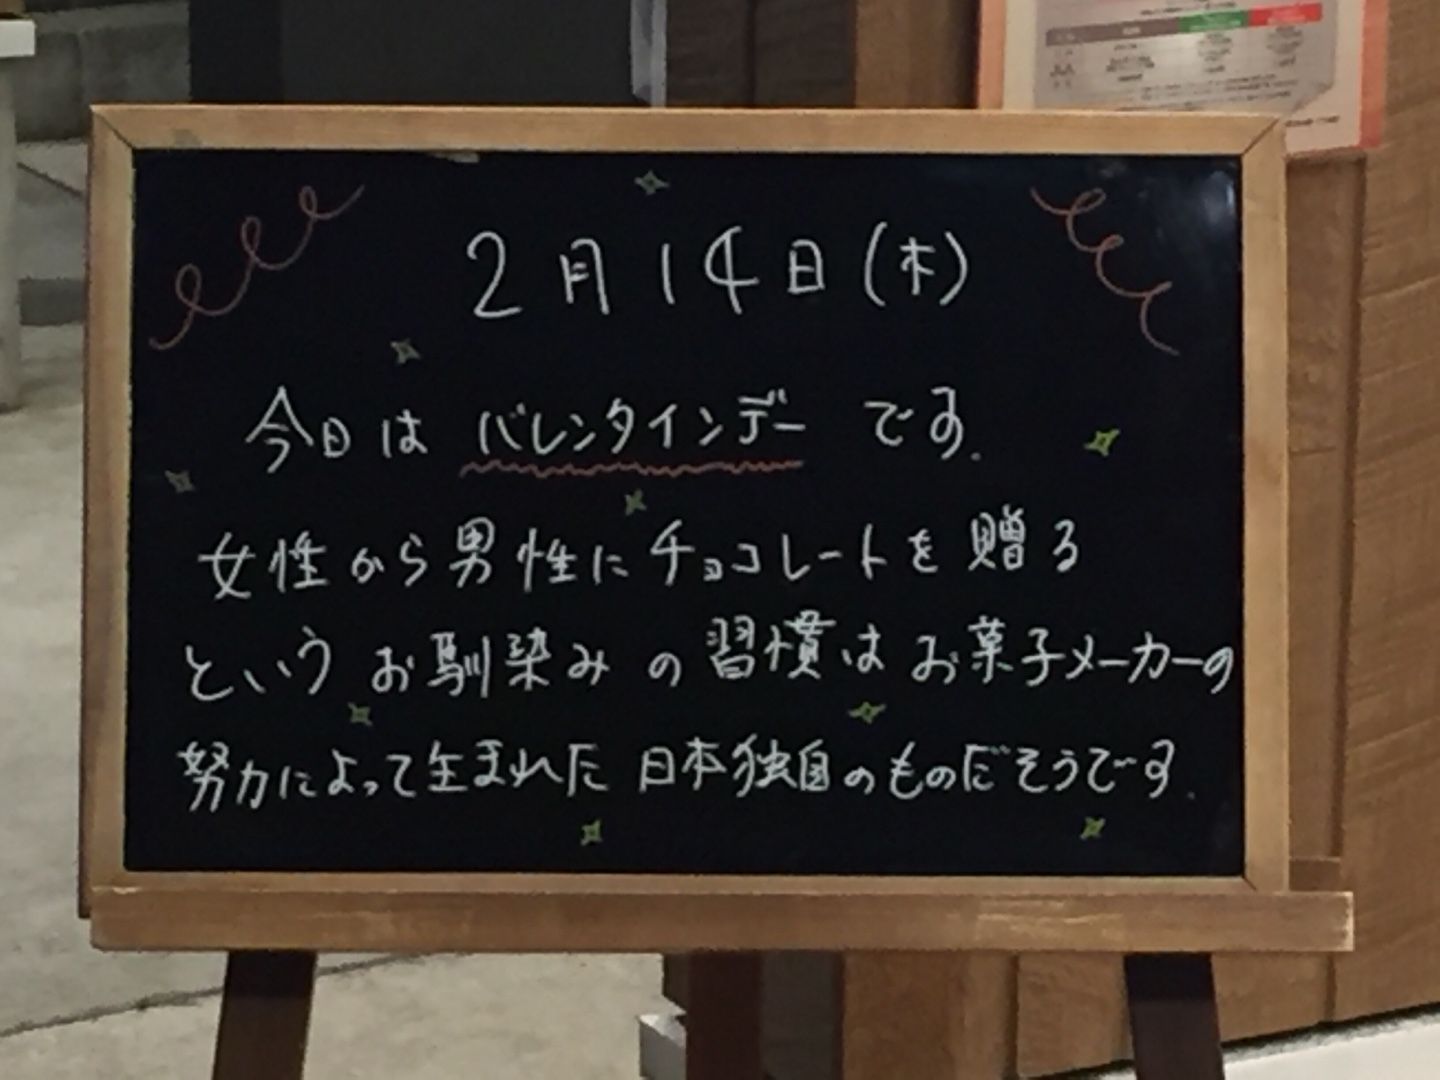 2月14日(木)
今日は バレンタインデー です.
女性から男性にチョコレートを贈る
というお馴染みの習慣はお菓子メーカーの
努力によって生まれた日本独自のものだそうです.